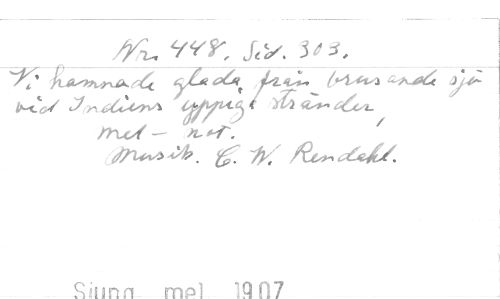 Nr. 448. Sid. 303.
Vi hamnade glada från brusande sjö
vid Indiens yppiga stränder,
mel - not.
Musik. C. W. Rendahl.
Sjung mel. 1907